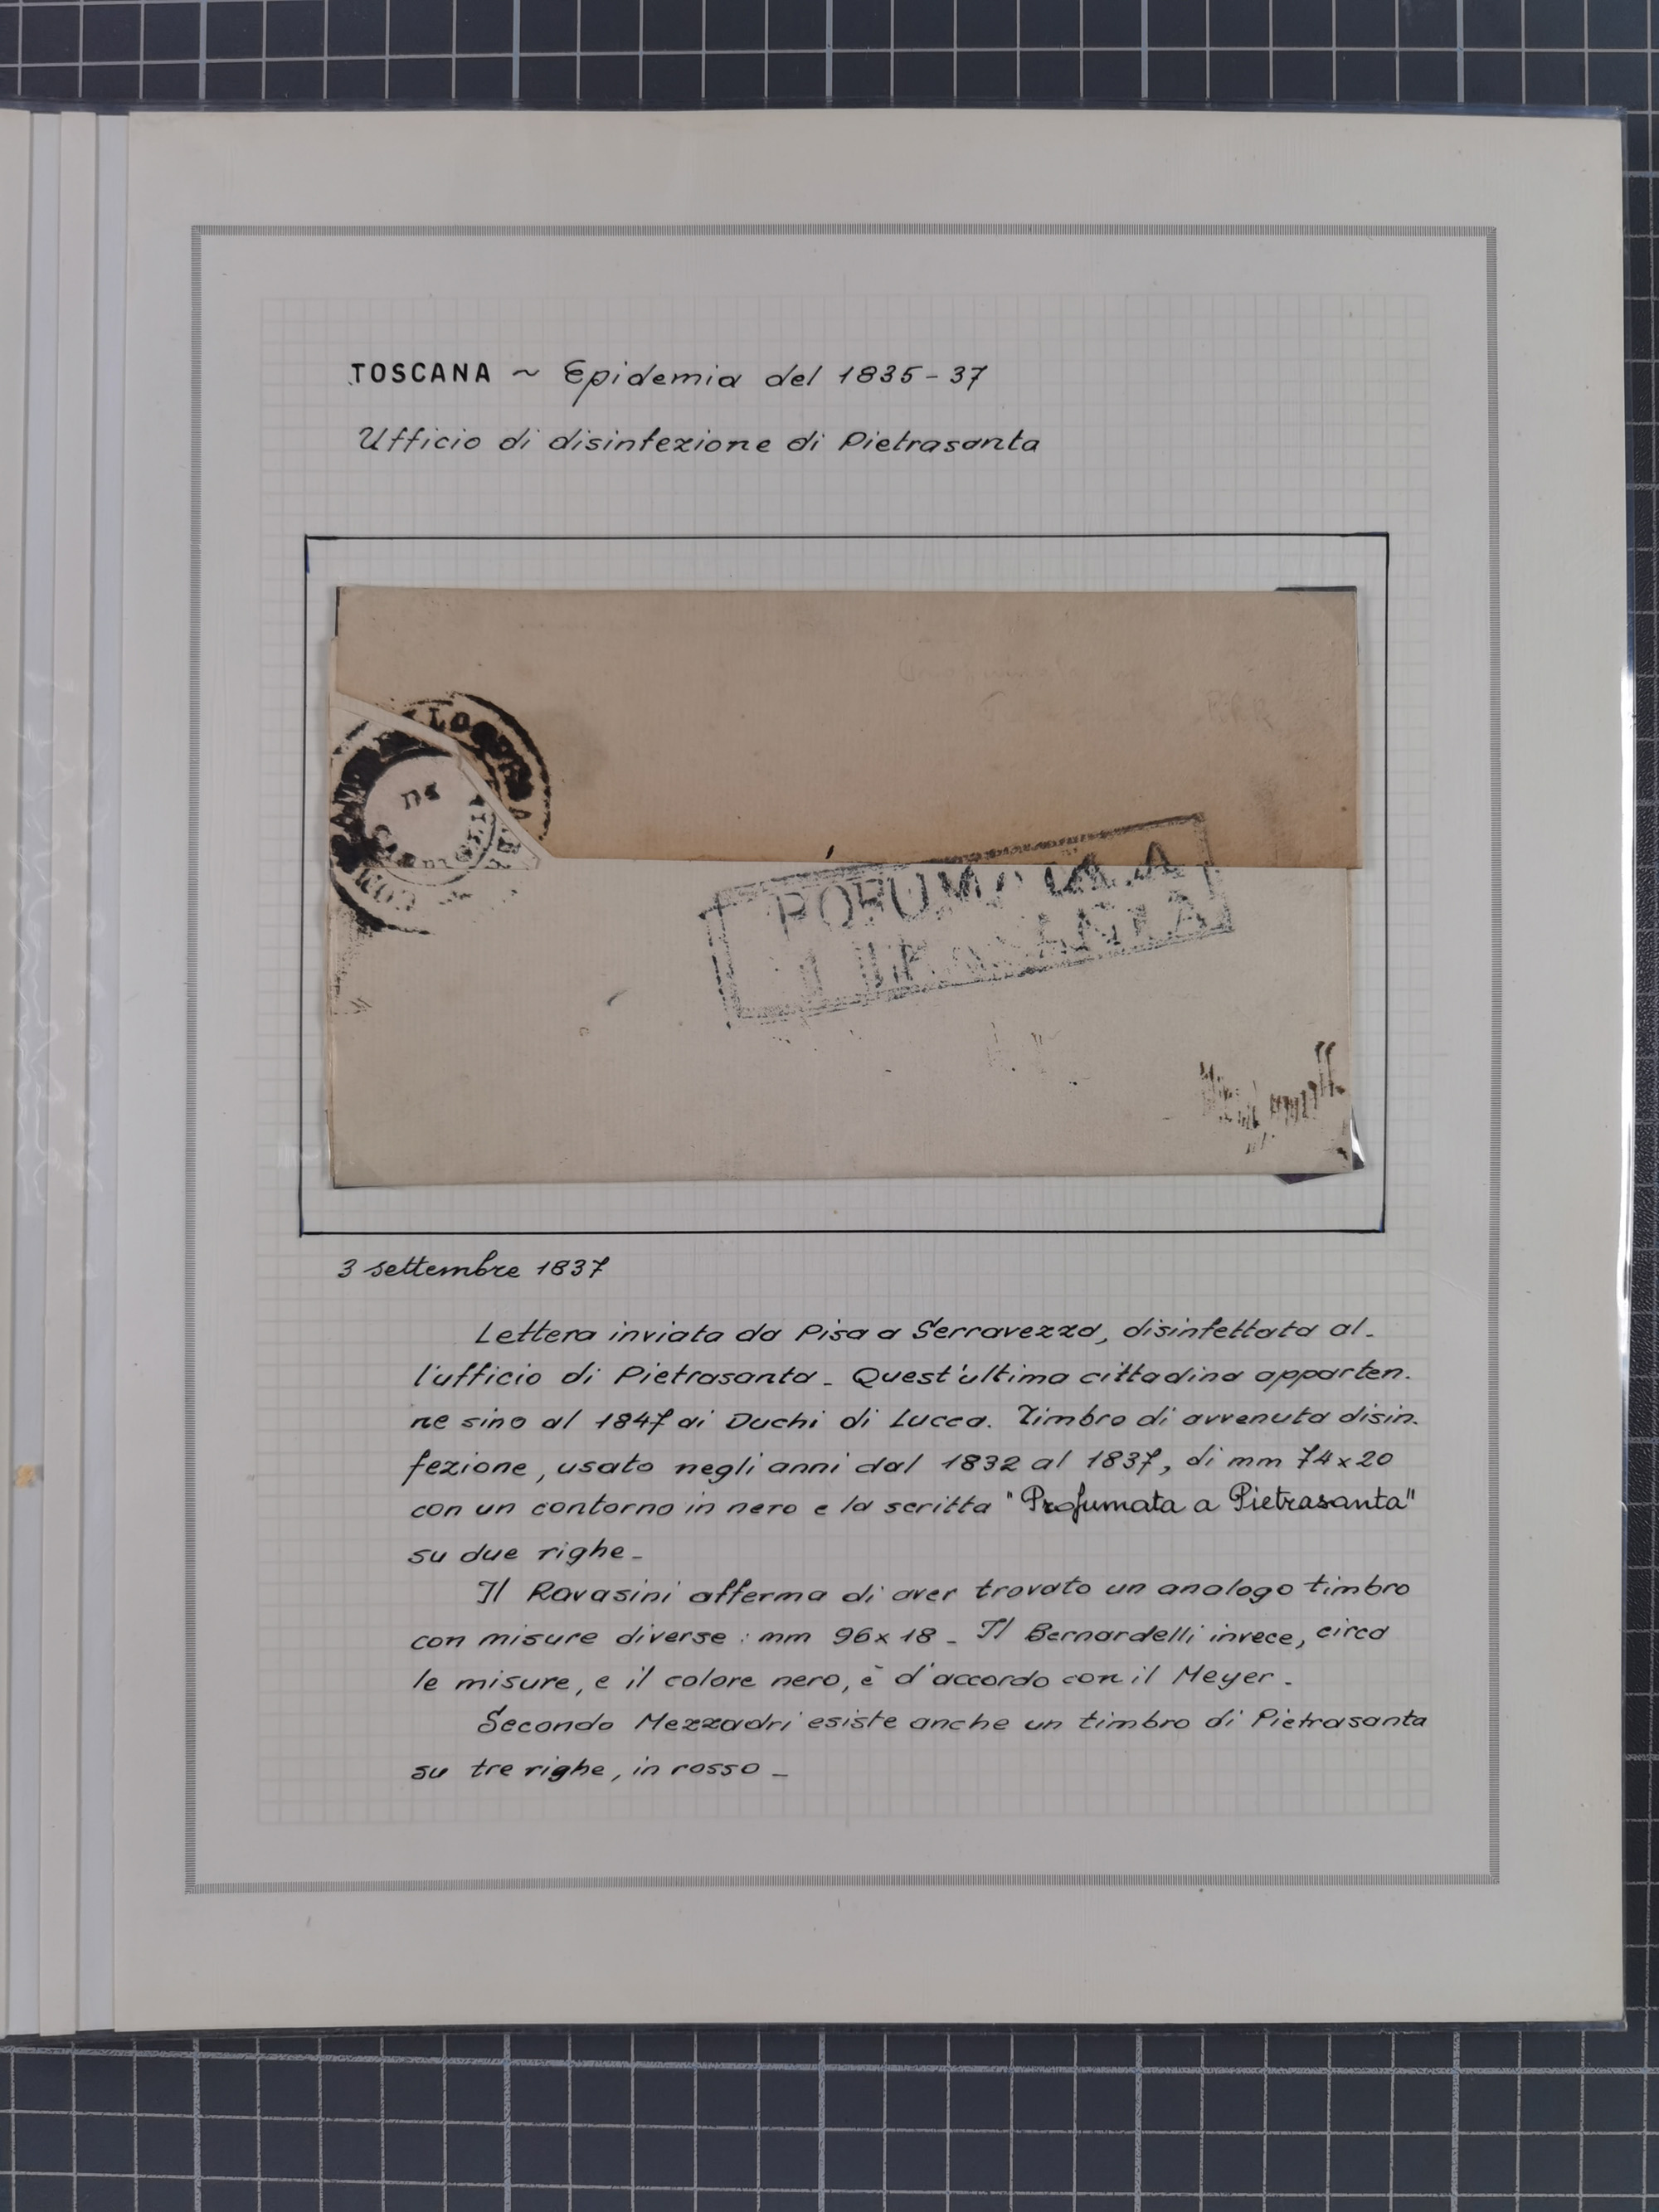 TOSCANA ~ Epidemia del 1835-37
Ufficio di disinfezione di Pietrasanta
RRR
POFUMATA A
3 settembre 1837
Lettera inviata da Pisa a Serravezza, disinfettata al-
l'ufficio di Pietrasanta - Quest'ultima cittadina apparten-
ne sino al 1847 ai Duchi di Lucca. Timbro di avvenuta disin-
fezione, usato negli anni dal 1832 al 1837, di mm 74x20
con un contorno in nero e la scritta "Profumata a Pietrasanta"
su due righe -
Il Ravasini afferma di aver trovato un analogo timbro
con misure diverse : mm 96x18 - Il Bernardelli invece, circa
le misure, e il colore nero, è d'accordo con il Meyer -
Secondo Mezzadri esiste anche un timbro di Pietrasanta
su tre righe, in rosso -